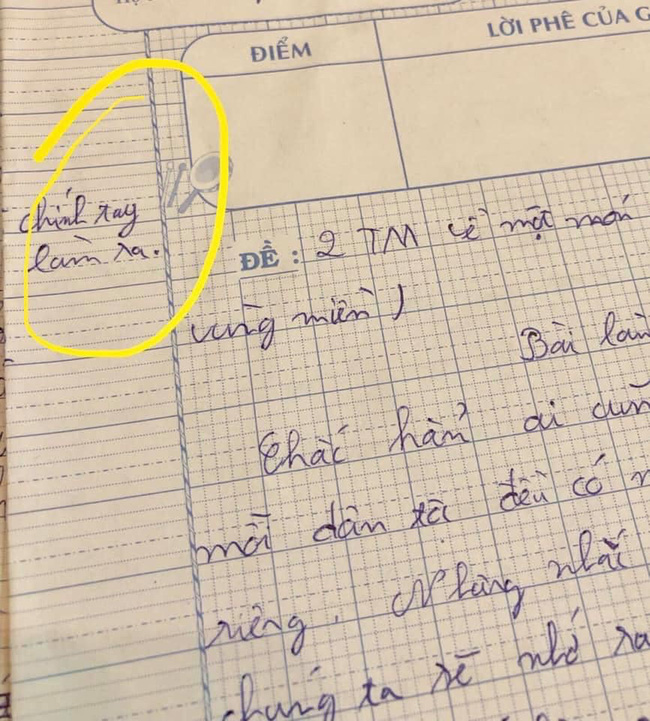 ĐIỂM
LỜI PHÊ CỦA G
chính tay
làm ra.
ĐỀ : 2 TM về một món
vùng miền)
Bài làm
Chắc hẳn ai cũng
mỗi dân tộc đều có
riêng. Nhưng nhắc
chúng ta sẽ nhớ ra